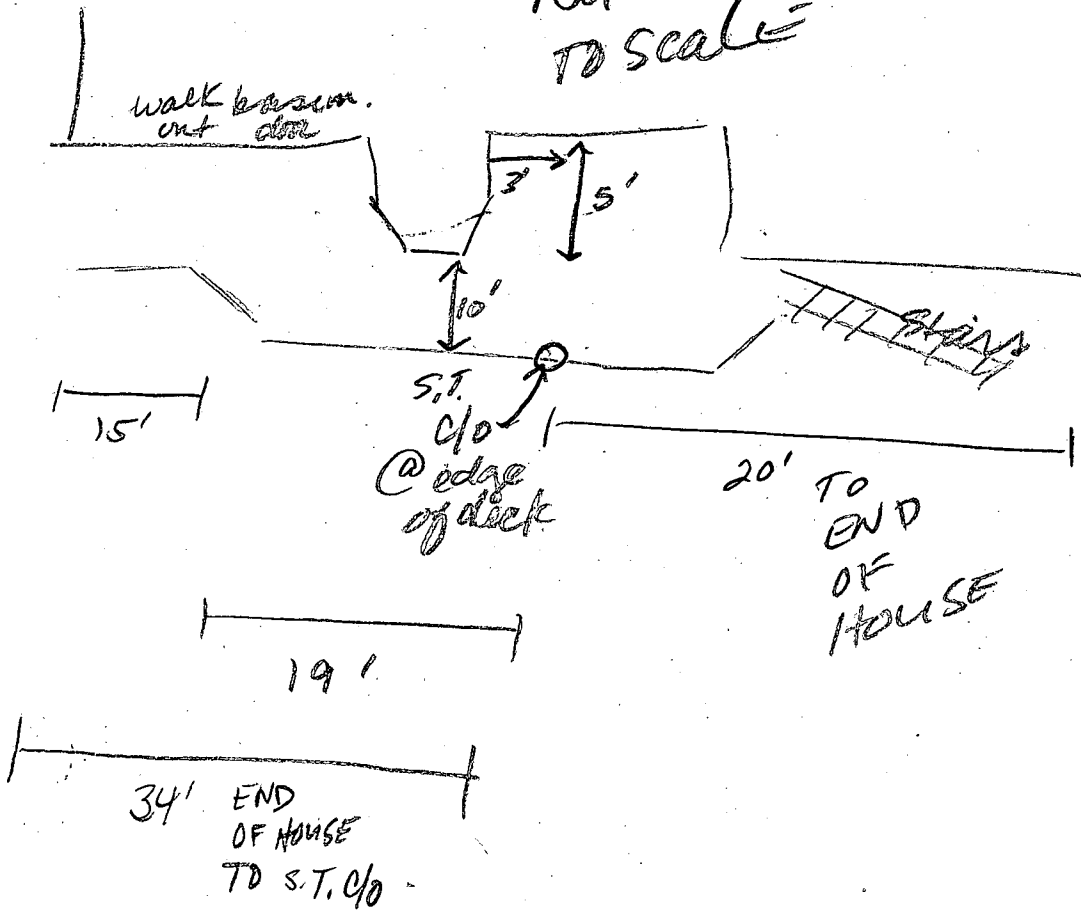 TO SCALE
walk basem.
out door
3'
5'
10'
Stairs
15'
S.T.
C/O
@ edge
of deck
20' TO
END
OF
HOUSE
19'
34' END
OF HOUSE
TO S.T. C/O